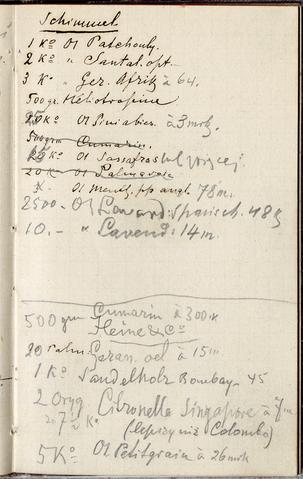 Schimmel
1 Ko Ol Patchouly.
2 Ko " Santal. opt.
3 K. " Ger. Afrik à 64.
500 gr. Heliotropine
25 Ko Ol Pini abiet. à 3 mrk.
500 grm Cumarin.
25 Ko Ol Sassafras więcej.
20 K. Ol Palmarosa
K. Ol Menth. pp angl. 78 m.
2500 - Ol Lavand: Spanisch. 48
10.- " Lavend: 14 m.
500 grm Cumarin à 300 K
Heine & Co
20 Palm. Geran. oel à 15 m
1 Ko Sandelholz Bombay 45
2 Oryg Citronella Singapore à 7 m
20 7 K. (lepszy niż Colombo)
5 Ko Ol Petitgrain à 26 mrk